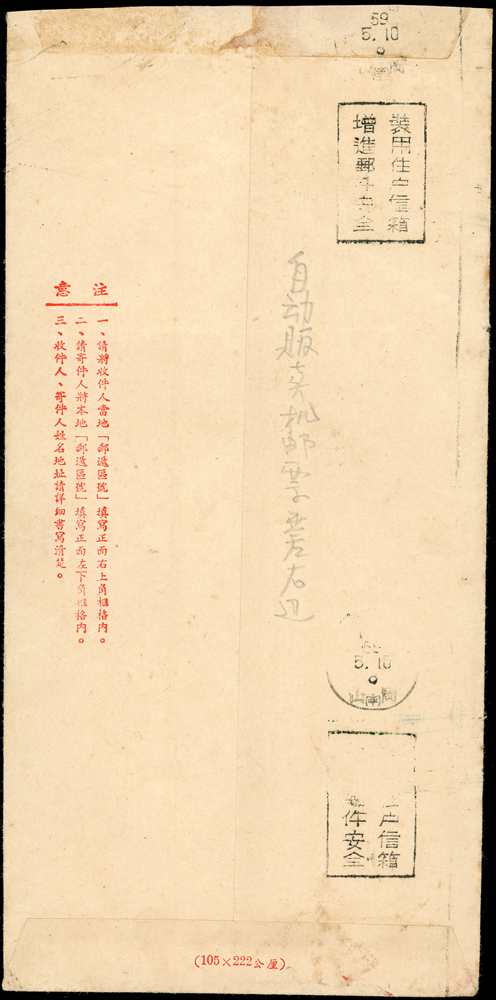 59
5.10
岡山
裝用住戶信箱
增進郵件安全
自动販卖机邮票
右辺
注意
一、請將收件人當地「郵遞區號」填寫正面右上角框格內。
二、請寄件人將本地「郵遞區號」填寫正面左下角框格內。
三、收件人、寄件人姓名地址請詳細書寫清楚。
5.10
岡山
戶信箱
件安全
(105×222公厘)